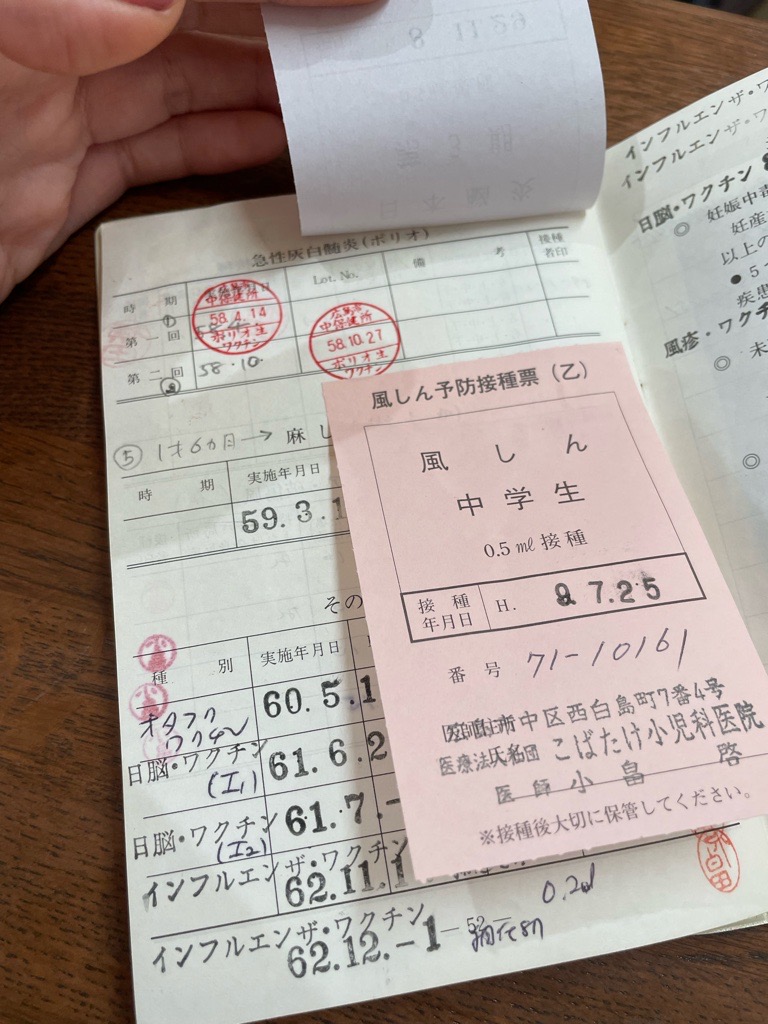 8 11.29
第 3 期
日 本 脳 炎
急性灰白髄炎(ポリオ)
時 期 Lot. No. 備 考 接種者印
中保健所
58.4.14
ポリオ生
ワクチン
第一回
中保健所
58.10.27
ポリオ生
ワクチン
第二回 58.10.
⑤ 1才6カ月→ 麻 し
時 期 実施年月日
59.3.1
その
種 別 実施年月日
オタフク
ワクチン
60.5.1
日脳・ワクチン
(I1)
61.6.2
日脳・ワクチン
(I2)
61.7.-
インフルエンザ・ワクチン
62.11.1
インフルエンザ・ワクチン
62.12.-1
0.2ml
風しん予防接種票(乙)
風 し ん
中学生
0.5㎖接種
接種年月日 H. 8 7.25
番号 71-10161
広島市中区西白島町7番4号
医療法人社団 こばたけ小児科医院
医師 小畠 啓
※接種後大切に保管してください。
インフルエンザ・ワ
インフルエンザ・ワ
日脳・ワクチン
◎ 妊娠中毒
妊産
以上の
● 5
疾患
風疹・ワクチ
◎ 未
◎